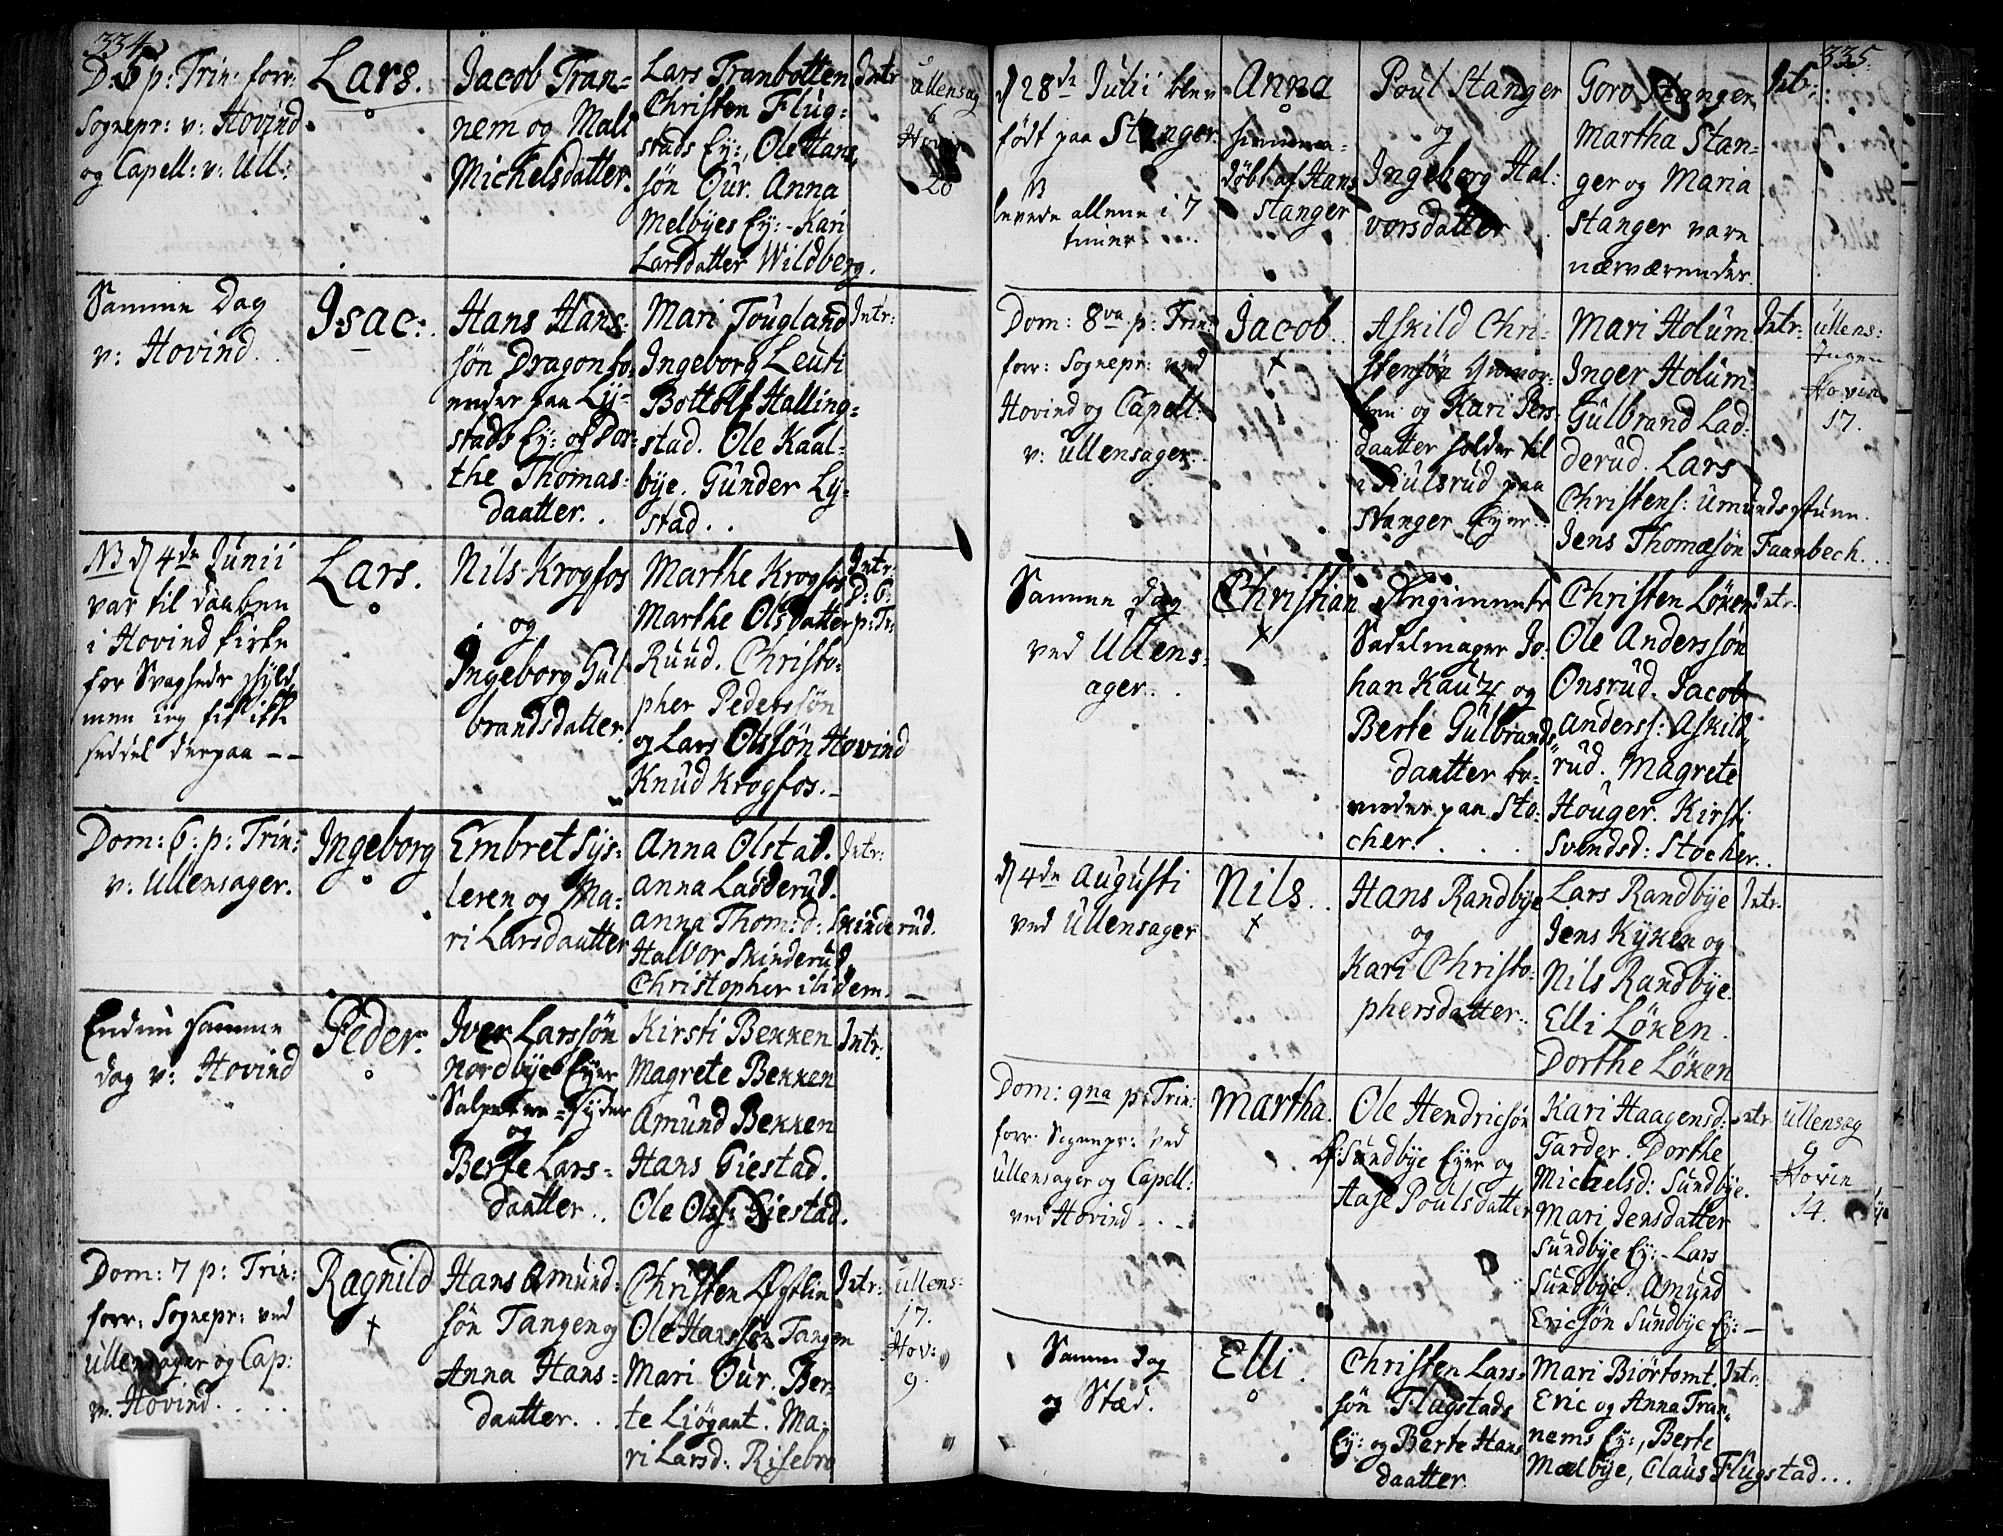 334
D: 5 p: Trin: forr:
Sognepr: v: Hovind
og Capell: v: Ull:
Lars.
Jacob Tran=
nem og Mali
Michelsdatter.
Lars Tranbotten
Christen Flug=
stads Ey:, Ole Hans
søn Our. Anna
Melbyes Ey:- Kari
Larsdatter Wildberg.
Intr
Ullensag
6
Hovin
20
Samme Dag
v: Hovind.
Isac:
Hans Hans=
søn Dragon bo,
ender paa Ly=
stads Ey: og Dor=
the Thomas=
daatter.
Mari Tougland
Ingeborg Leuti
Bottolf Halling=
stad. Ole Kaal=
bye. Gunder Ly=
stad.
Intr:
NB d 4de Junii
var til daaben
i Hovind kirke
for Svagheds skyld,
men jeg fik ikke
seddel derpaa - -
Lars.
Nils Krogfos
og
Ingeborg Gul
brandsdatter.
Marthe Krogfos
Marthe Olsdatter
Ruud. Christo=
pher Pederssøn
og Lars Olssøn Hovind
Knud Krogfos.-
Intr:
D: 6:
p: Tr:
Dom: 6: p: Trin:
v: Ullensager.
Ingeborg
Embret Sys=
leren og Ma=
ri Larsdaatter
Anna Olstad.
Anna Ladderud.
Anna Thom:d: Skinderud.
Halvor Skinderud,
Christopher ibidem. -
Intr:
Endnu samme
dag v: Hovind
Peder.
Iver Larssøn
Nordbye Eyer
Salpeter=Syder
og
Berte Lars=
daatter.
Kirsti Bekken
Magrete Bekken
Amund Bekken
Hans Giestad.
Ole Ols: Giestad.
Intr:
Dom: 7 p: Trin:
forr: Sognepr: ved
Ullensager og Cap:
v: Hovind.
Ragnild
Hans Amund=
søn Tangen og
Anna Hans=
daatter.
Christen Østlin
Ole Hanssøn Tangen
Mari Our. Ber=
te Liøgant. Ma=
ri Larsd: Risebro
Intr:
Ullens:
17.
Hov:
9.
335.
d 28de Julii blev
født paa Stanger.
NB
levede allene i 7
timer.
Anna
hiemme=
døbt af Hans
Stanger
Poul Stanger
og
Ingeborg Hal:
vorsdatter
Goro Stanger,
Martha Stan=
ger og Maria
Stanger vare
nærværender.
Intr:
Dom: 8va p: Trin:
forr: Sognepr: ved
Hovind og Capell:
v: Ullensager.
Jacob.
Askild Chri=
stensøn
og Kari Pers=
daatter holder til
i Kiulsrud paa
Stanger Eyer.
Mari Holum
Inger Holum.
Gulbrand Lad=
derud. Lars
Christens: Umundsstuen.
Jens Thomæsøn Faanbech.
Intr.
Ullens:
Ingen
Hovin
17.
Samme Dag
ved Ullens=
ager.
Christian
Regiments
Sadelmager Jo=
han Kautz og
Berte Gulbrands
daatter bo=
ender paa Sto=
cher.
Christen Løken
Ole Anderssøn
Onsrud. Jacob
Anderss: Askild=
rud. Magrete
Houger. Kirsti
Svendsd: Stocher.
Intr.
d 4de Augusti
ved Ullensager
Nils.
Hans Randbye
og
Kari Christo=
phersdatter.
Lars Randbye
Jens Kyken og
Nils Randbye.
Elli Løken.
Dorthe Løken
Intr.
Dom: 9na p: Trin:
forr: Sognepr: ved
Ullensager og Capell:
ved Hovind.
Martha.
Ole Hendricsøn
Sundbye Eyer og
Aase Poulsdatter
Kari Haagensd:
Garder. Dorthe
Michelsd: Sundbye.
Mari Jensdatter
Sundbye Ey:- Lars
Sundbye. Amund
Ericsøn Sundbye Ey:-
Intr
Ullensag
9
Hovin
14.
Samme dag
og Stæd.
Elli.
Christen Lars=
søn Flugstads
Ey: og Berte Hans
daatter.
Mari Biørtomt.
Eric og Anna Tran=
nems Ey:, Berte
Mælbye, Claus Flugstad...
Intr.